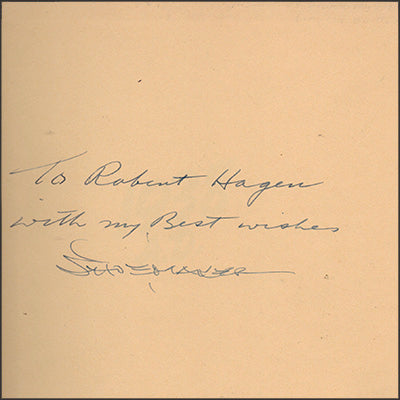 To Robert Hagen
with my Best wishes